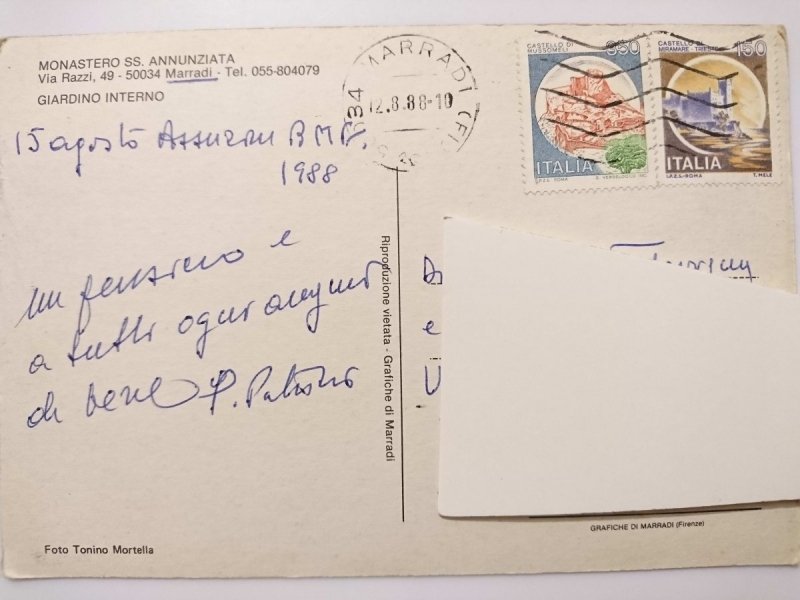 MONASTERO SS. ANNUNZIATA
Via Razzi, 49 - 50034 Marradi - Tel. 055-804079
GIARDINO INTERNO
15 agosto B M
1988
un pensiero e
a tutti ogni
di bene P.
Foto Tonino Mortella
Riproduzione vietata - Grafiche di Marradi
MARRADI (FI)
12.8.88-10
CASTELLO DI
MUSSOMELI
650
ITALIA
I.P.Z.S. ROMA
CASTELLO DI
MIRAMARE - TRIESTE
150
ITALIA
I.P.Z.S.-ROMA T. MELE
e
GRAFICHE DI MARRADI (Firenze)